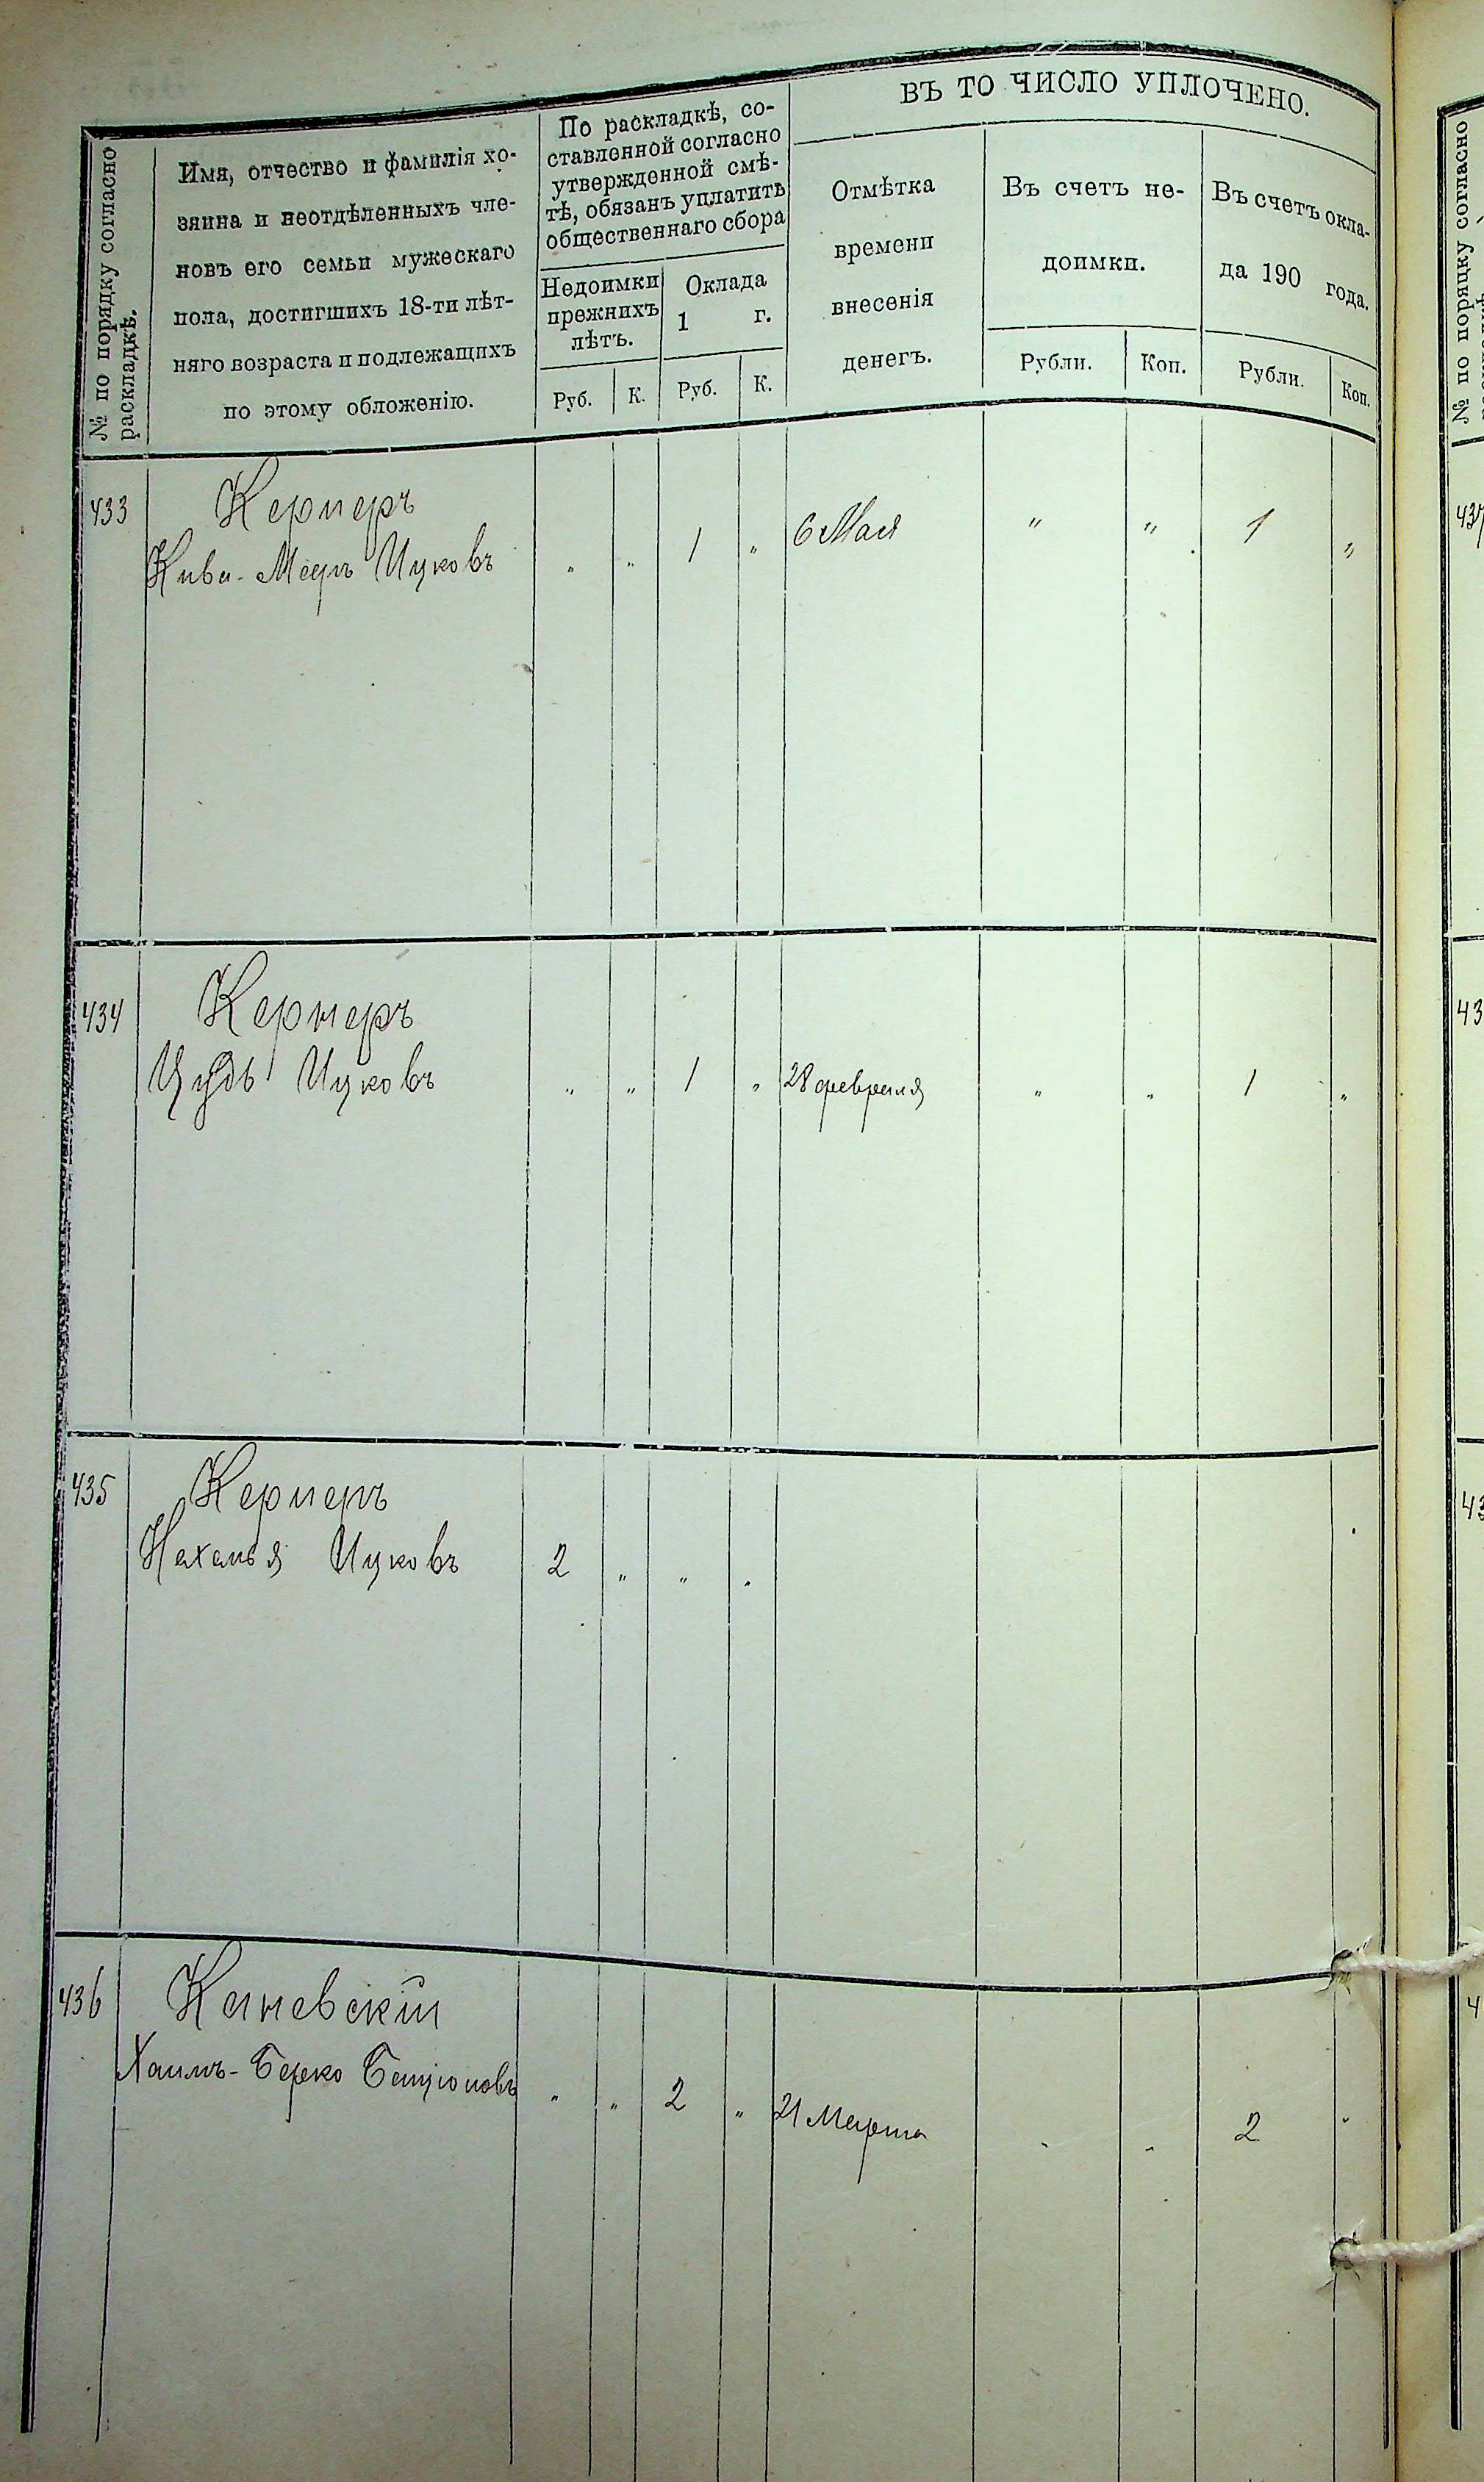 № по порядку согласно
раскладкѣ.
Имя, отчество и фамилія хо-
зяина и неотдѣленныхъ чле-
новъ его семьи мужескаго
пола, достигшихъ 18-ти лѣт-
няго возраста и подлежащихъ
по этому обложенію.
По раскладкѣ, со-
ставленной согласно
утвержденной смѣ-
тѣ, обязанъ уплатить
общественнаго сбора
Недоимки
прежнихъ
лѣтъ.
Оклада
1 г.
Руб. К. Руб. К.
ВЪ ТО ЧИСЛО УПЛОЧЕНО.
Отмѣтка
времени
внесенія
денегъ.
Въ счетъ не-
доимки.
Рубли. Коп.
Въ счетъ окла-
да 190 года.
Рубли. Коп.
433 Кернеръ
Кива-Мееръ Ицковъ " " 1 " 6 Мая " " 1 "
434 Кернеръ
Ицковъ " " 1 " 28 февраля " " 1 "
435 Кернеръ
Нахамья Ицковъ 2 " " "
436 Каневскій
Хаимъ-Берко Бенціоновъ " " 2 " 21 Марта " " 2 "
№ по порядку согласно